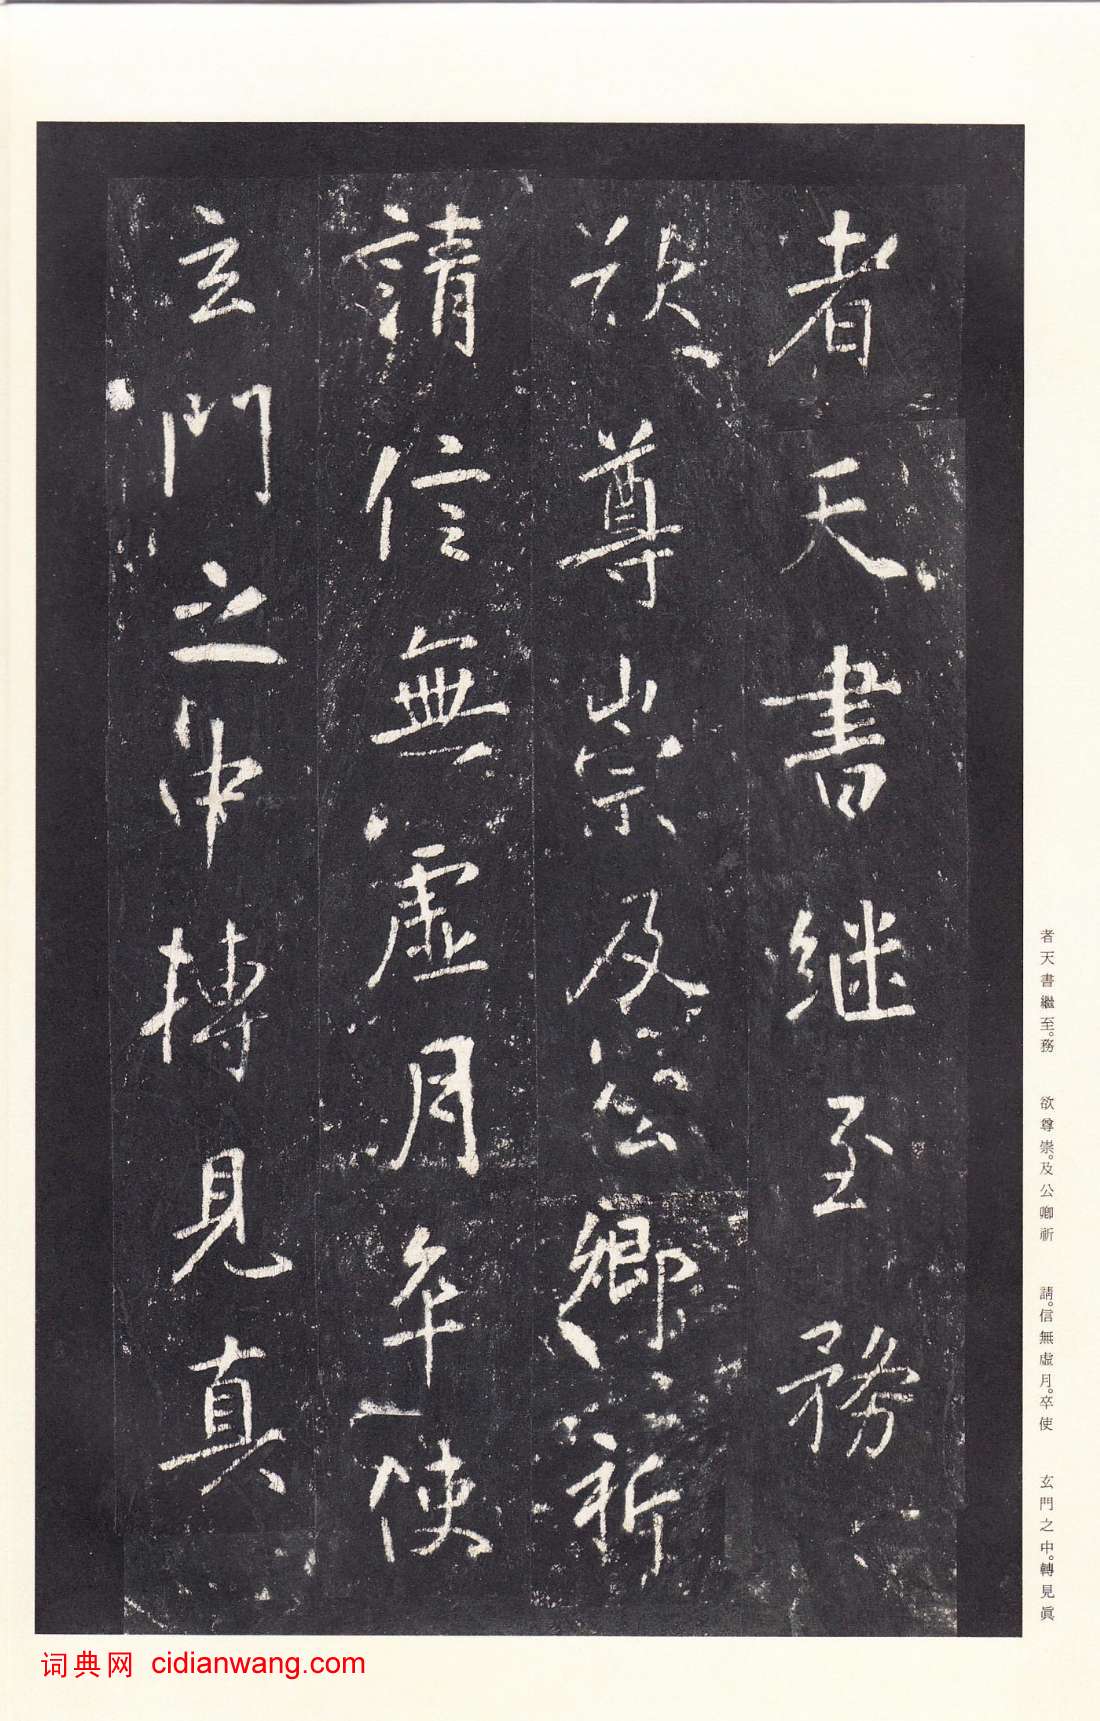 者天書継至務
欲尊崇及公卿祈
請信無虛月卒使
玄門之中轉見真
者天書繼至。務　欲尊崇。及公卿祈　請。信無虛月。卒使　玄門之中。轉見眞
词典网 cidianwang.com